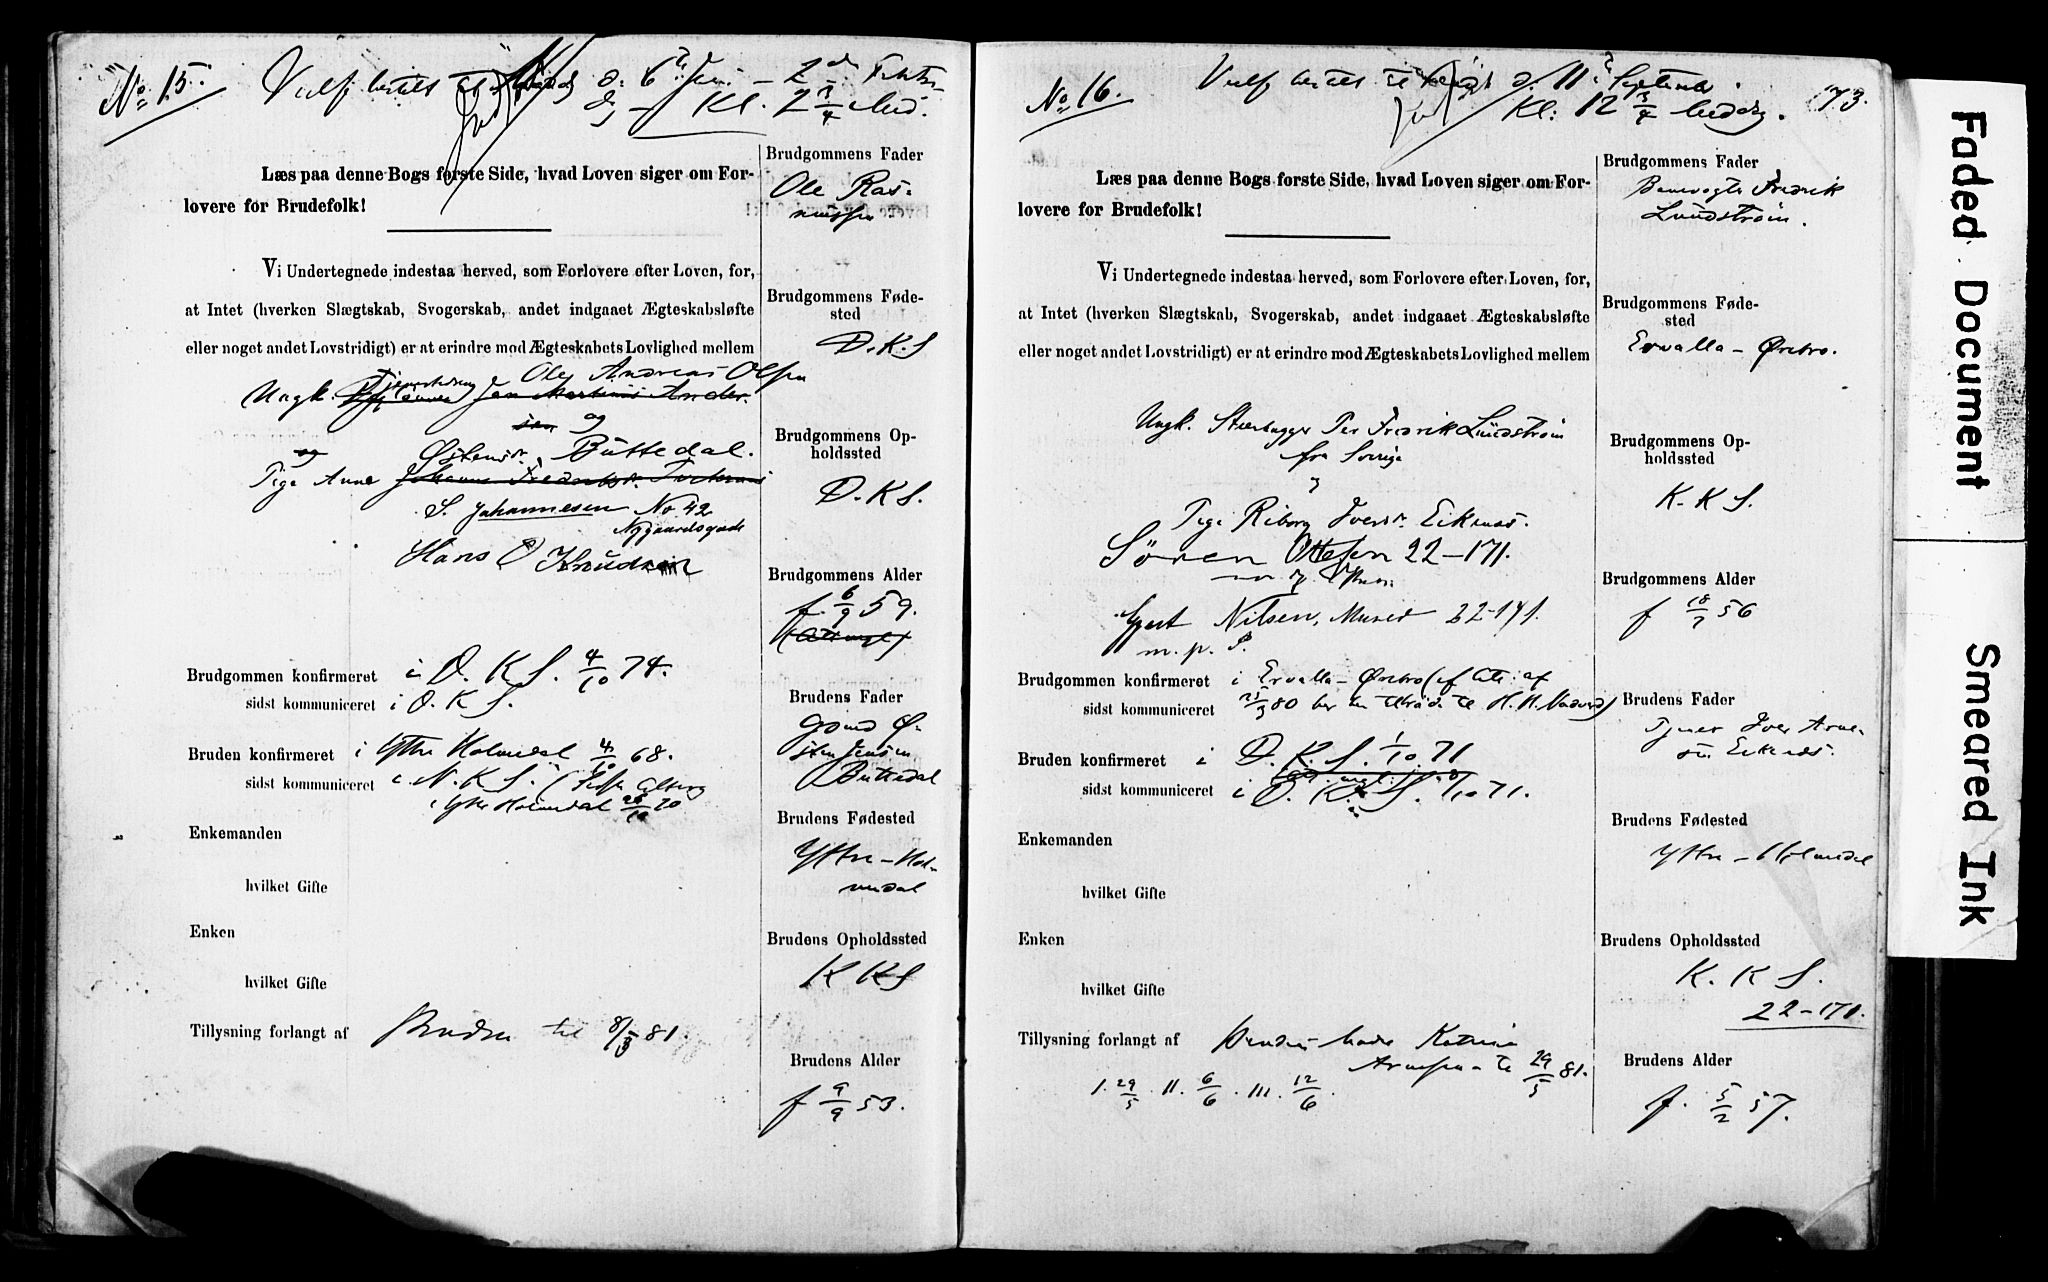 No. 15.
d. 6te Juni – 2den
Kl. 2 3/4
Læs paa denne Bogs første Side, hvad Loven siger om For-
lovere for Brudefolk!
Vi Undertegnede indestaa herved, som Forlovere efter Loven, for,
at Intet (hverken Slægtskab, Svogerskab, andet indgaaet Ægteskabsløfte
eller noget andet Lovstridigt) er at erindre mod Ægteskabets Lovlighed mellem
Ole Andreas Olsen
Ungk. Jen Martinus Ander-
sen og
og Østensdr. Buttedal.
Pige Anne Johanne
S. Johannesen No 42
Nygaardsgade
Hans O Knudsen
Brudgommen konfirmeret i D. K. S. 4/10 74.
sidst kommuniceret i D. K. S.
Bruden konfirmeret i Yttre Holmedal 68.
sidst kommuniceret i N. K. S.
i Yttre Holmedal 70
Enkemanden
hvilket Gifte
Enken
hvilket Gifte
Tillysning forlangt af Bruden til 8/5 81.
Brudgommens Fader
Ole Ras-
mussen
Brudgommens Føde-
sted
D. K. S
Brudgommens Op-
holdssted
D. K. S.
Brudgommens Alder
f. 6/9 59.
Brudens Fader
Gmd Ø-
sten Jensen
Buttedal
Brudens Fødested
Yttre-Hol-
medal
Brudens Opholdssted
K KS
Brudens Alder
f 9/9 53.
No. 16.
d. 11te September
Kl: 12 3/4 Middag.
173.
Læs paa denne Bogs første Side, hvad Loven siger om For-
lovere for Brudefolk!
Vi Undertegnede indestaa herved, som Forlovere efter Loven, for,
at Intet (hverken Slægtskab, Svogerskab, andet indgaaet Ægteskabsløfte
eller noget andet Lovstridigt) er at erindre mod Ægteskabets Lovlighed mellem
Ungk. Stenhugger Per Fredrik Lundström
fra Sverige
Pige Riborg Iversdr. Eiknes.
Sören Ottesen 22–171.
Nilsen, Mured 22-171.
m. p. P.
Brudgommen konfirmeret i Ervalla – Ørebro
sidst kommuniceret
Bruden konfirmeret i D. K. S. 1/10 71
sidst kommuniceret i D. K. S. 8/10 71.
Enkemanden
hvilket Gifte
Enken
hvilket Gifte
Tillysning forlangt af Brudens Moder Katrina
Arnesen – til 29/5 81.
I. 29/5. II. 6/6. III. 12/6.
Brudgommens Fader
Banevogter Fredrik
Lundström.
Brudgommens Føde-
sted
Ervalla – Ørebro.
Brudgommens Op-
holdssted
K. K S.
Brudgommens Alder
f 18/7 56
Brudens Fader
Iver Arne-
sen Eiknes.
Brudens Fødested
Yttre – Holmedal
Brudens Opholdssted
K. K S.
22–171.
Brudens Alder
f. 5/2 57.
Faded Document
Smeared Ink